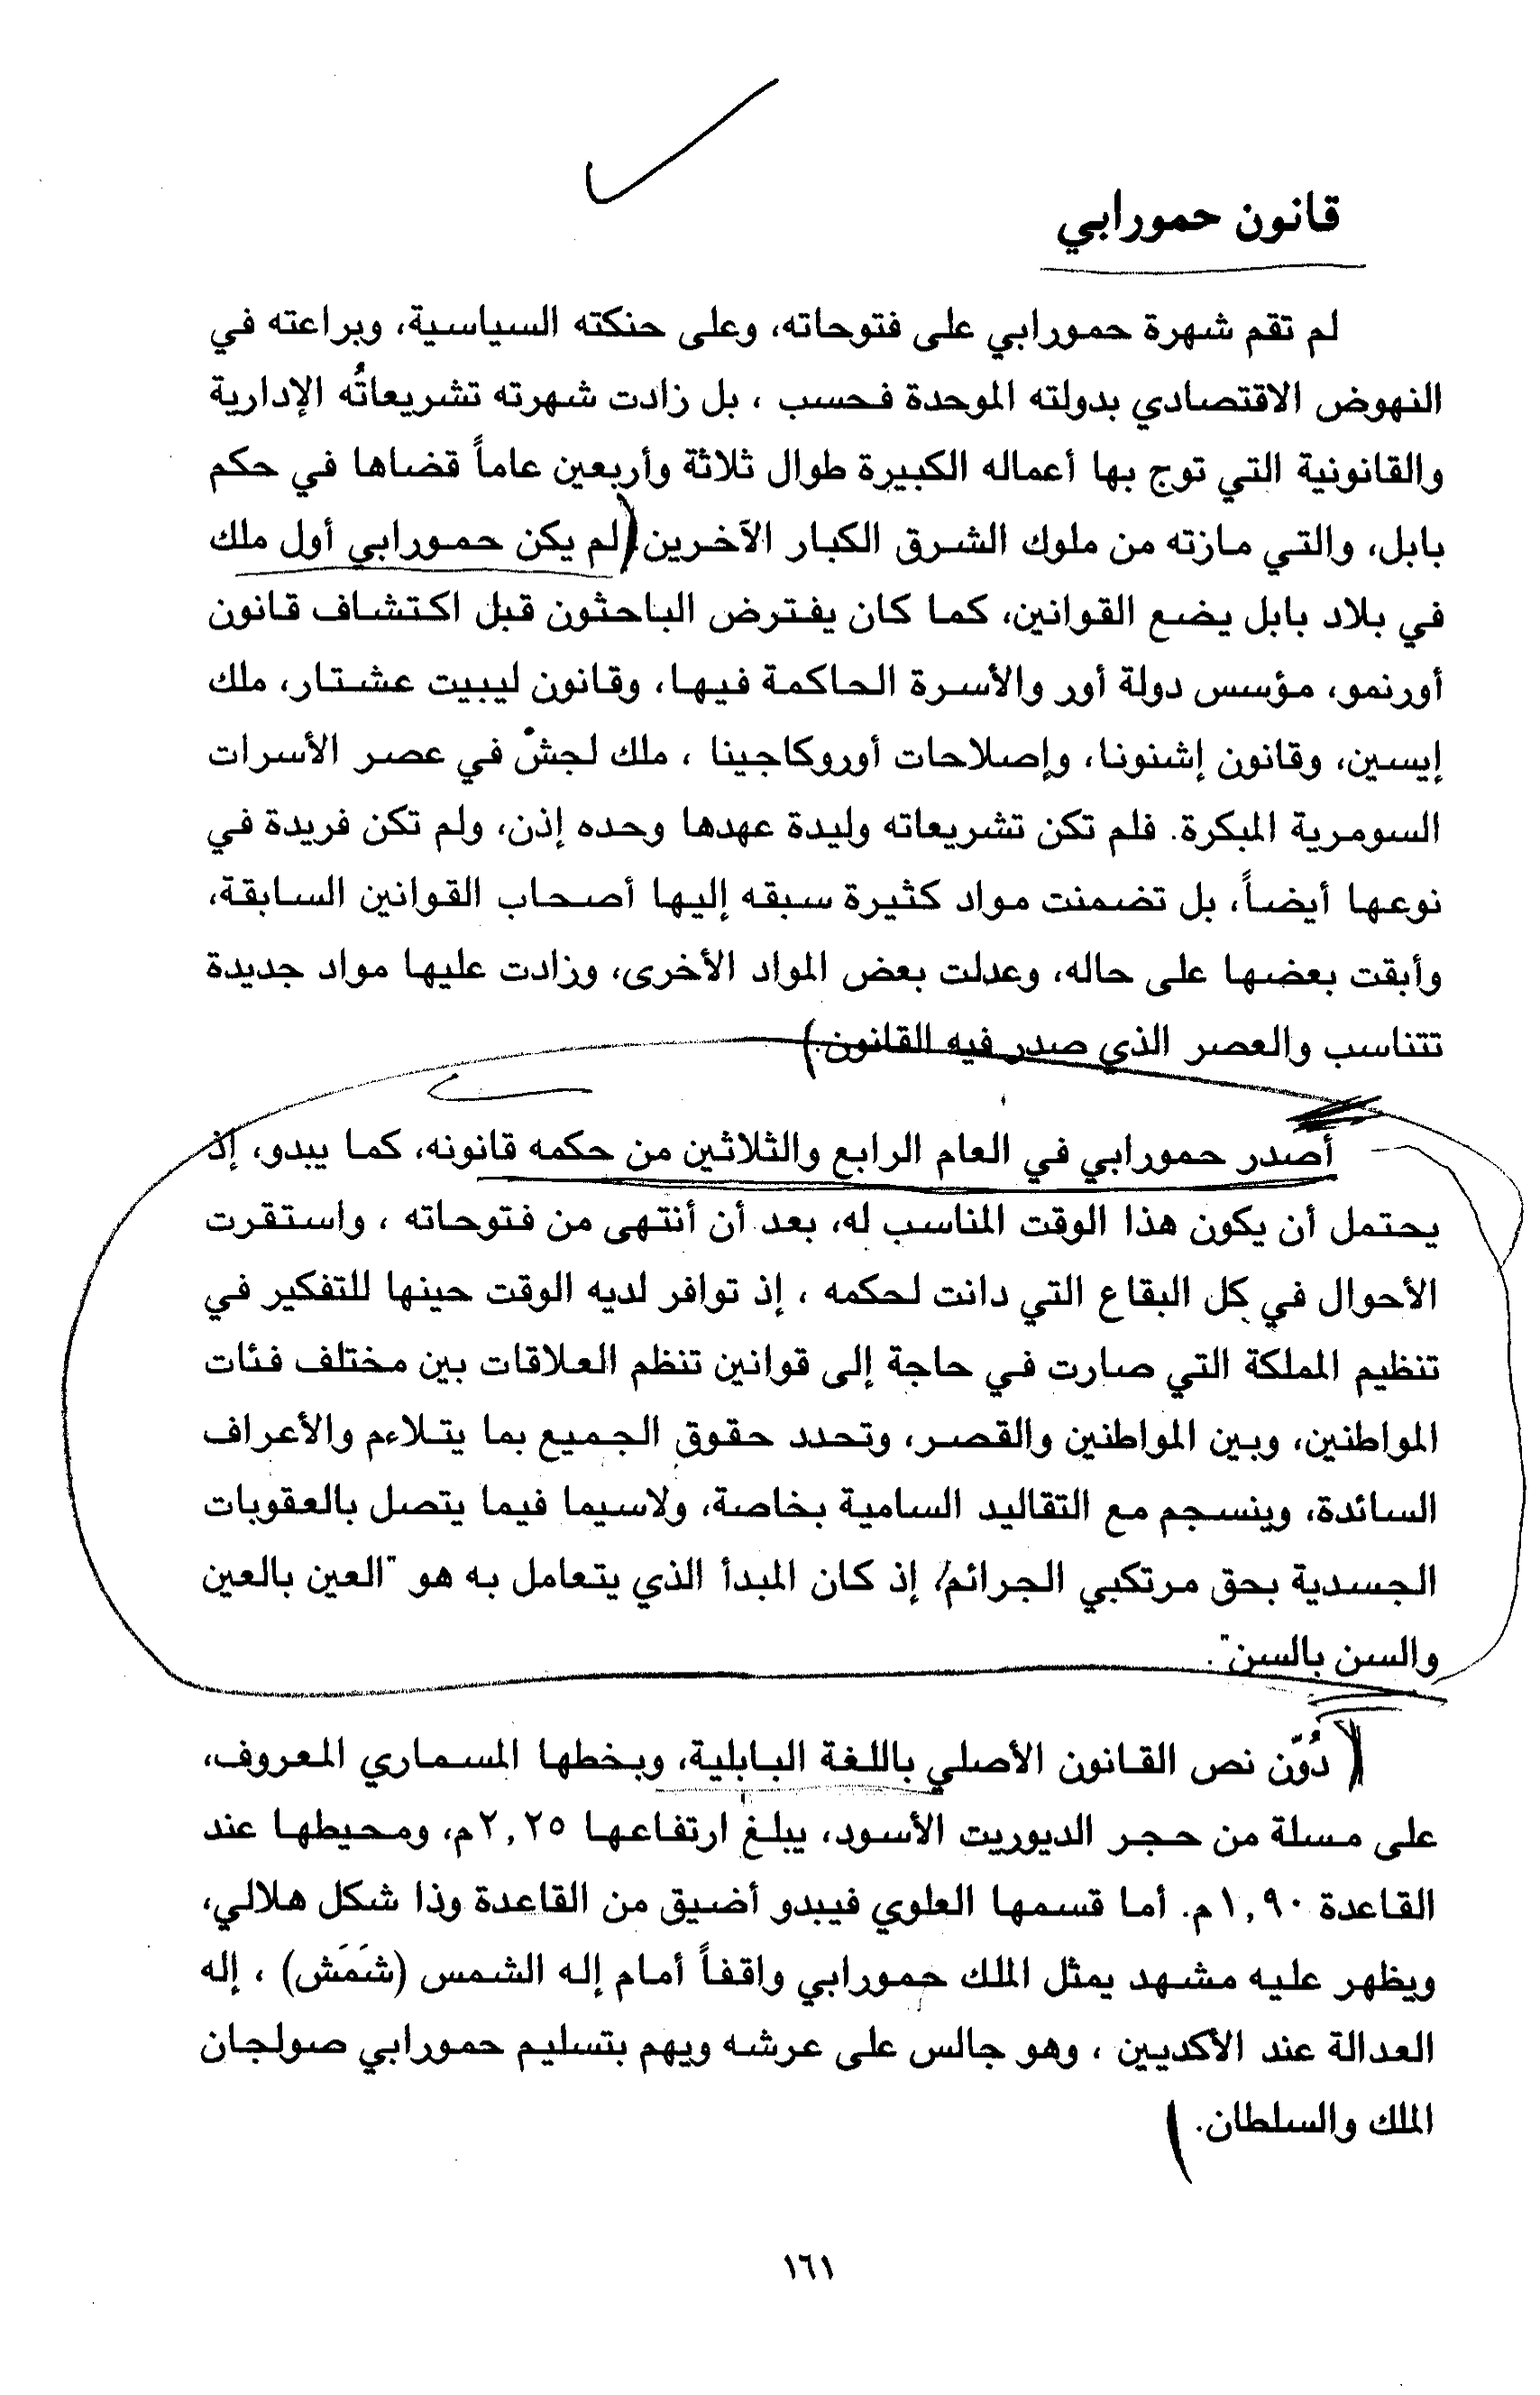 قانون حمورابي
لم تقم شهرة حمورابي على فتوحاته، وعلى حنكته السياسية، وبراعته في
النهوض الاقتصادي بدولته الموحدة فحسب ، بل زادت شهرته تشريعاتُه الإدارية
والقانونية التي توج بها أعماله الكبيرة طوال ثلاثة وأربعين عاماً قضاها في حكم
بابل، والتي مازته من ملوك الشرق الكبار الآخرين. (لم يكن حمورابي أول ملك
في بلاد بابل يضع القوانين، كما كان يفترض الباحثون قبل اكتشاف قانون
أورنمو، مؤسس دولة أور والأسرة الحاكمة فيها، وقانون ليبيت عشتار، ملك
إيسين، وقانون إشنونا، وإصلاحات أوروكاجينا ، ملك لجشْ في عصر الأسرات
السومرية المبكرة. فلم تكن تشريعاته وليدة عهدها وحده إذن، ولم تكن فريدة في
نوعها أيضاً، بل تضمنت مواد كثيرة سبقه إليها أصحاب القوانين السابقة،
وأبقت بعضها على حاله، وعدلت بعض المواد الأخرى، وزادت عليها مواد جديدة
تتناسب والعصر الذي صدر فيه القانون.)
أصدر حمورابي في العام الرابع والثلاثين من حكمه قانونه، كما يبدو، إذ
يحتمل أن يكون هذا الوقت المناسب له، بعد أن أنتهى من فتوحاته ، واستقرت
الأحوال في كل البقاع التي دانت لحكمه ، إذ توافر لديه الوقت حينها للتفكير في
تنظيم المملكة التي صارت في حاجة إلى قوانين تنظم العلاقات بين مختلف فئات
المواطنين، وبين المواطنين والقصر، وتحدد حقوق الجميع بما يتلاءم والأعراف
السائدة، وينسجم مع التقاليد السامية بخاصة، ولاسيما فيما يتصل بالعقوبات
الجسدية بحق مرتكبي الجرائم/ إذ كان المبدأ الذي يتعامل به هو "العين بالعين
والسن بالسن".
(دُوّن نص القانون الأصلي باللغة البابلية، وبخطها المسماري المعروف،
على مسلة من حجر الديوريت الأسود، يبلغ ارتفاعها ٢,٢٥م، ومحيطها عند
القاعدة ١,٩٠م. أما قسمها العلوي فيبدو أضيق من القاعدة وذا شكل هلالي،
ويظهر عليه مشهد يمثل الملك حمورابي واقفاً أمام إله الشمس (شَمَش) ، إله
العدالة عند الأكديين ، وهو جالس على عرشه ويهم بتسليم حمورابي صولجان
الملك والسلطان.)
١٦١